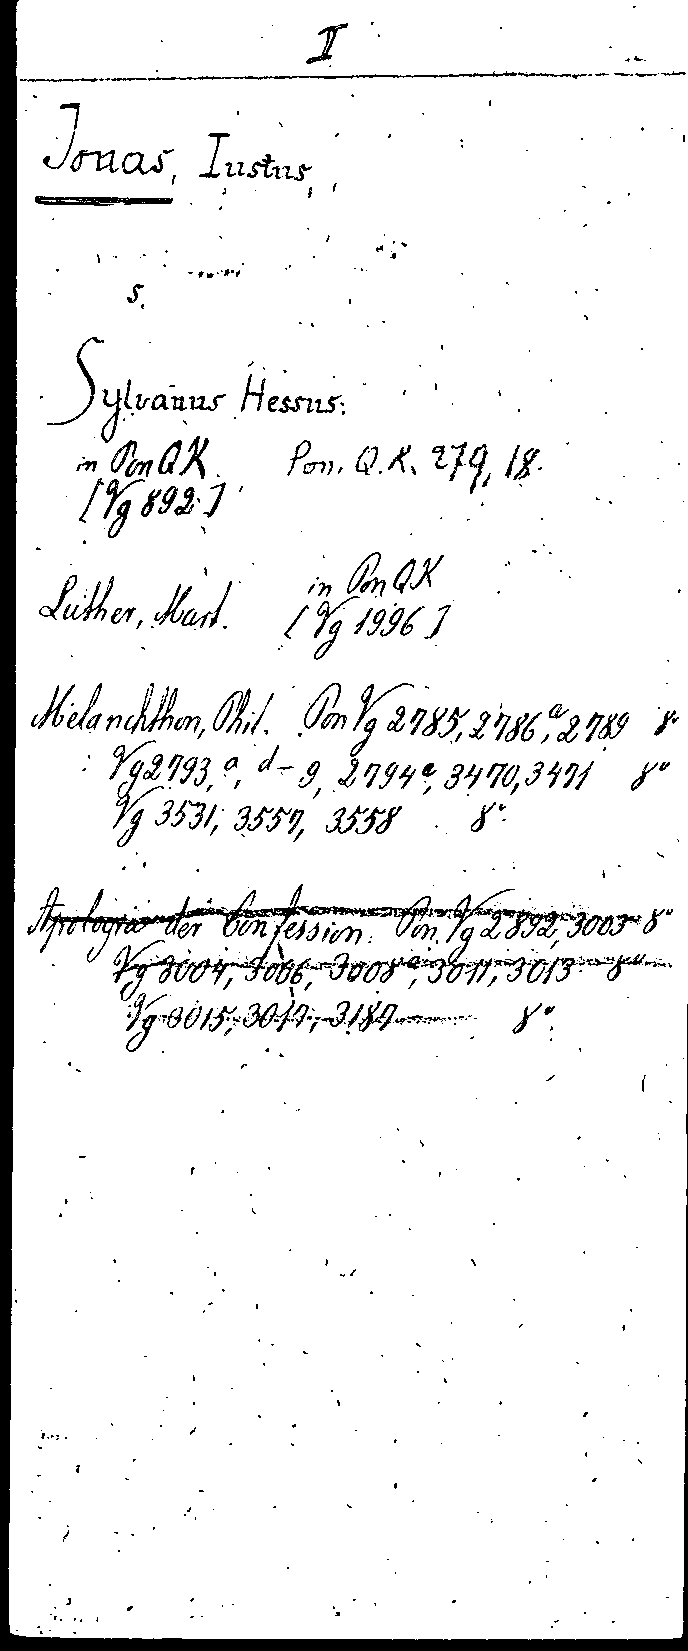 II
Jonas, Iustus,
s.
Sylvanus Hessus:
in Pon QK Pon. Q.K. 279, 18.
[Vg 892]
in Pon QK
Luther, Mart. [Vg 1996]
Melanchthon, Phil. Pon Vg 2785, 2786a, 2789 8°
Vg 2793, a, d-g, 2794a, 3470, 3471 8°
Vg 3531, 3557, 3558 8°
Apologia der Confession. Pon. Vg 2892, 3003 8°
Vg 3004, 3006, 3008a, 3011, 3013 8°
Vg 3015, 3017, 3187 8°